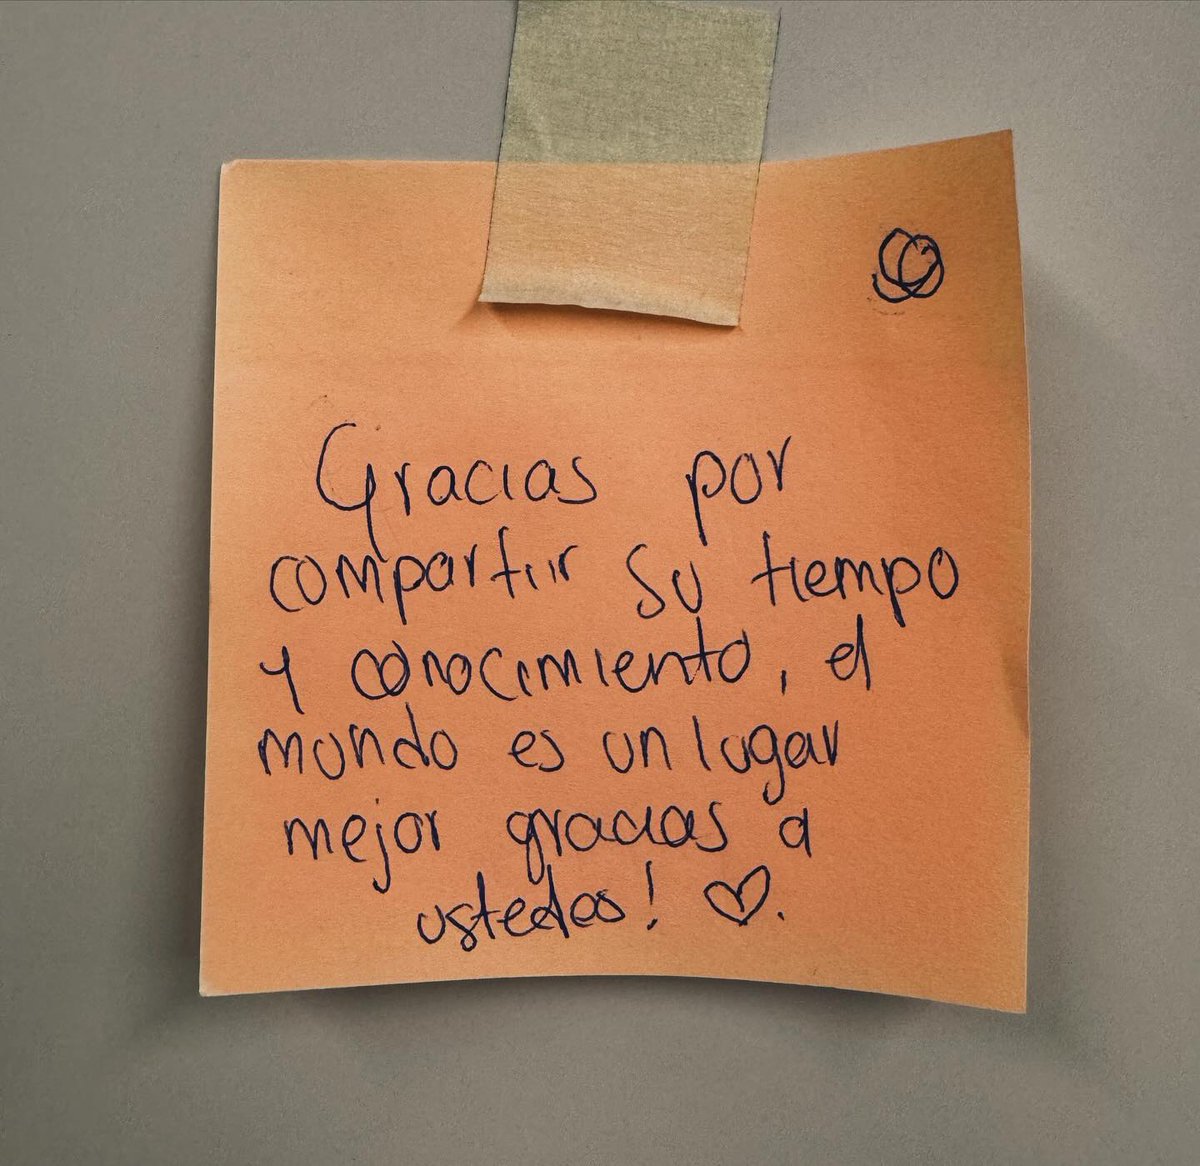 Gracias por
compartir su tiempo
y conocimiento, el
mundo es un lugar
mejor gracias a
ustedes! ♡.